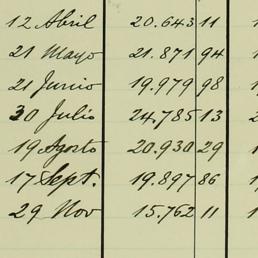 12 Abril 20.643 11
21 Mayo 21.871 94
21 Junio 19.979 98
30 Julio 24.785 13
19 Agosto 20.930 29
17 Sept. 19.897 86
29 Nov 15.762 11